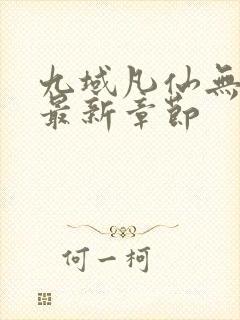 九域凡仙無
最新章節
何一柯